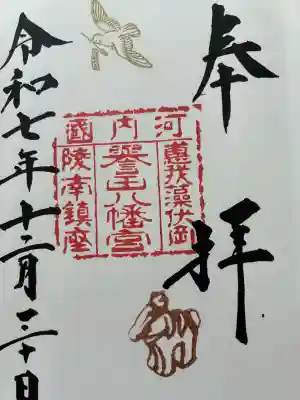 奉拝
河内國
惠我藻伏岡
譽田八幡宮
陵南鎮座
令和七年十二月三十日